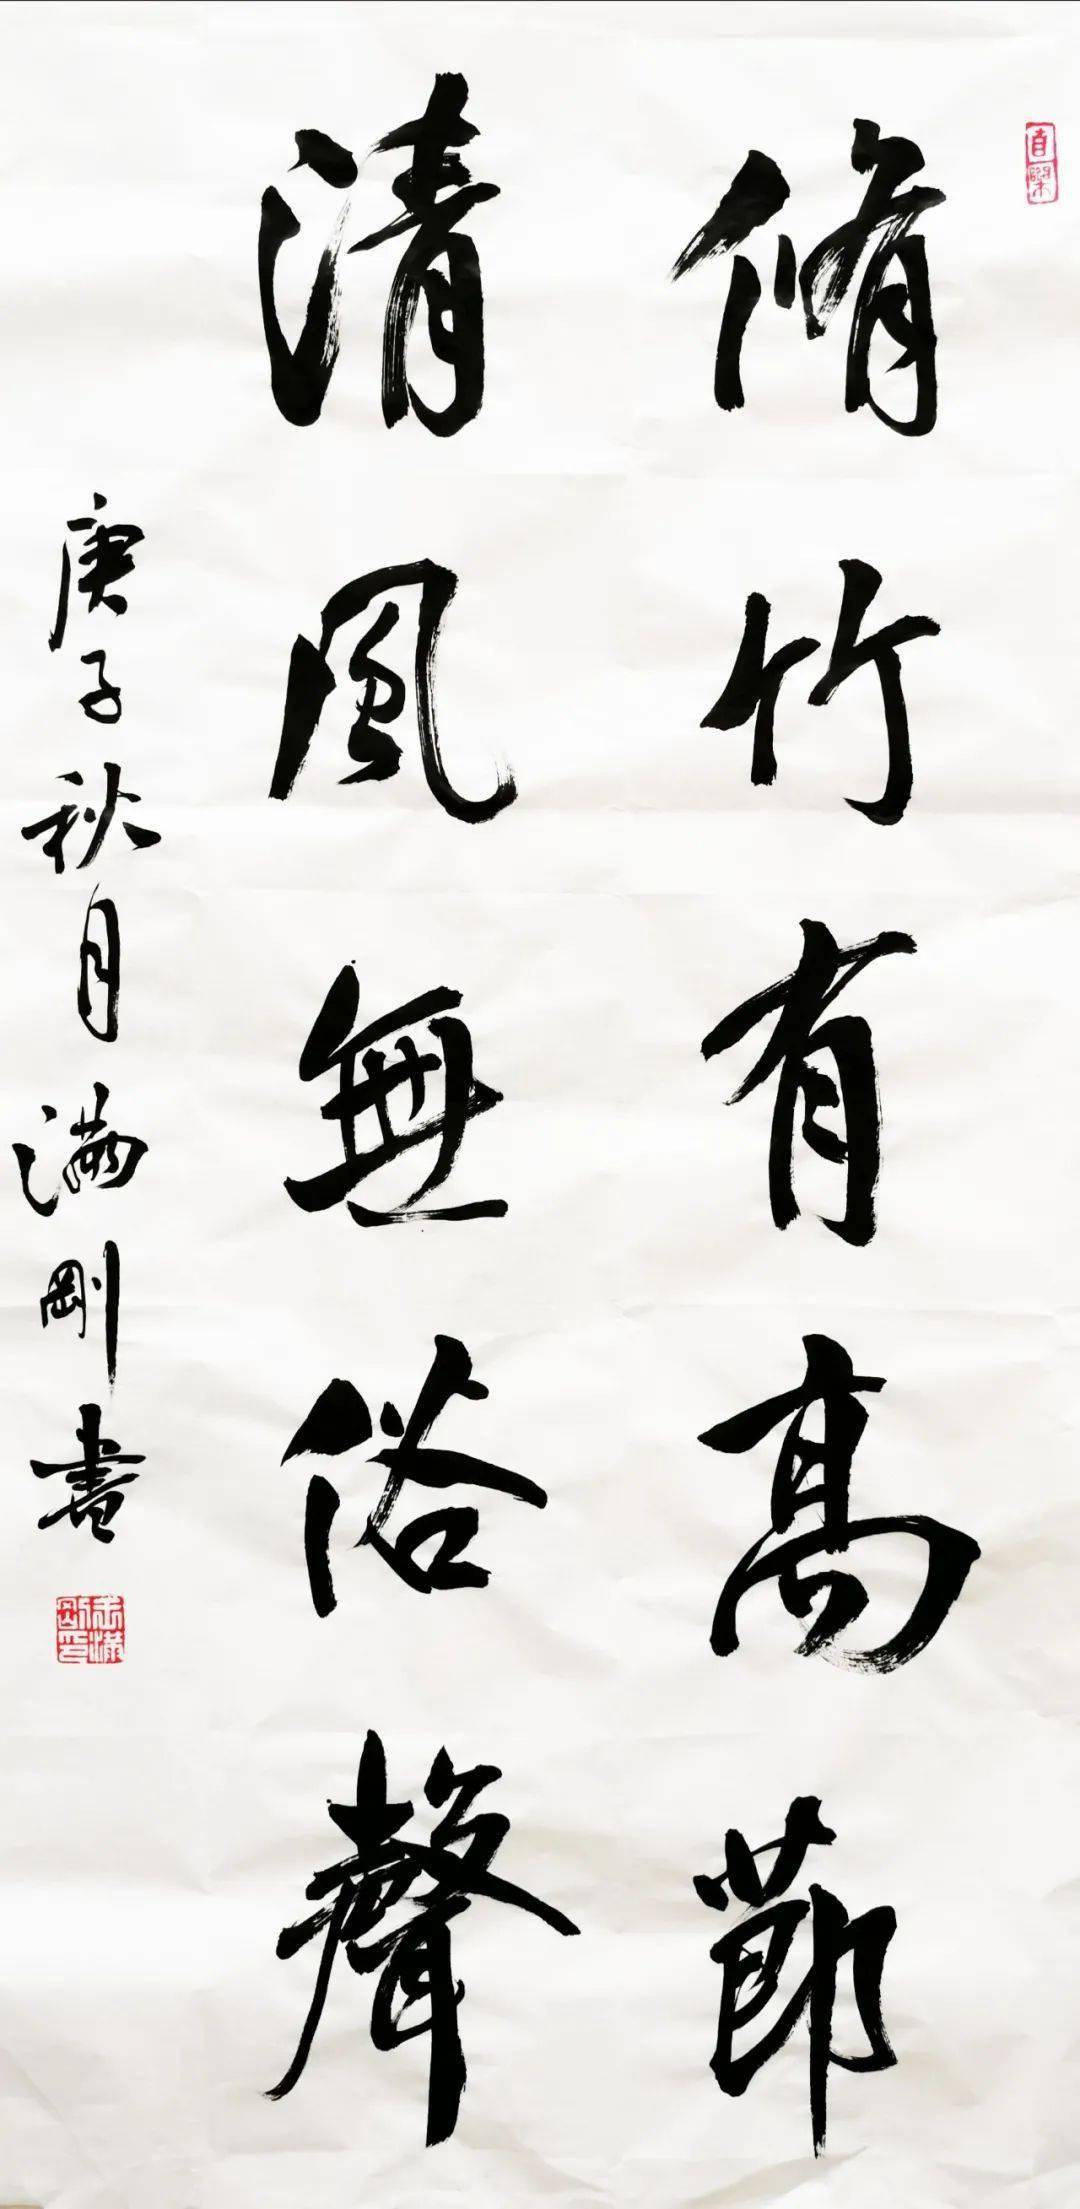 脩竹有高節
清風無俗聲
庚子秋月满剛書